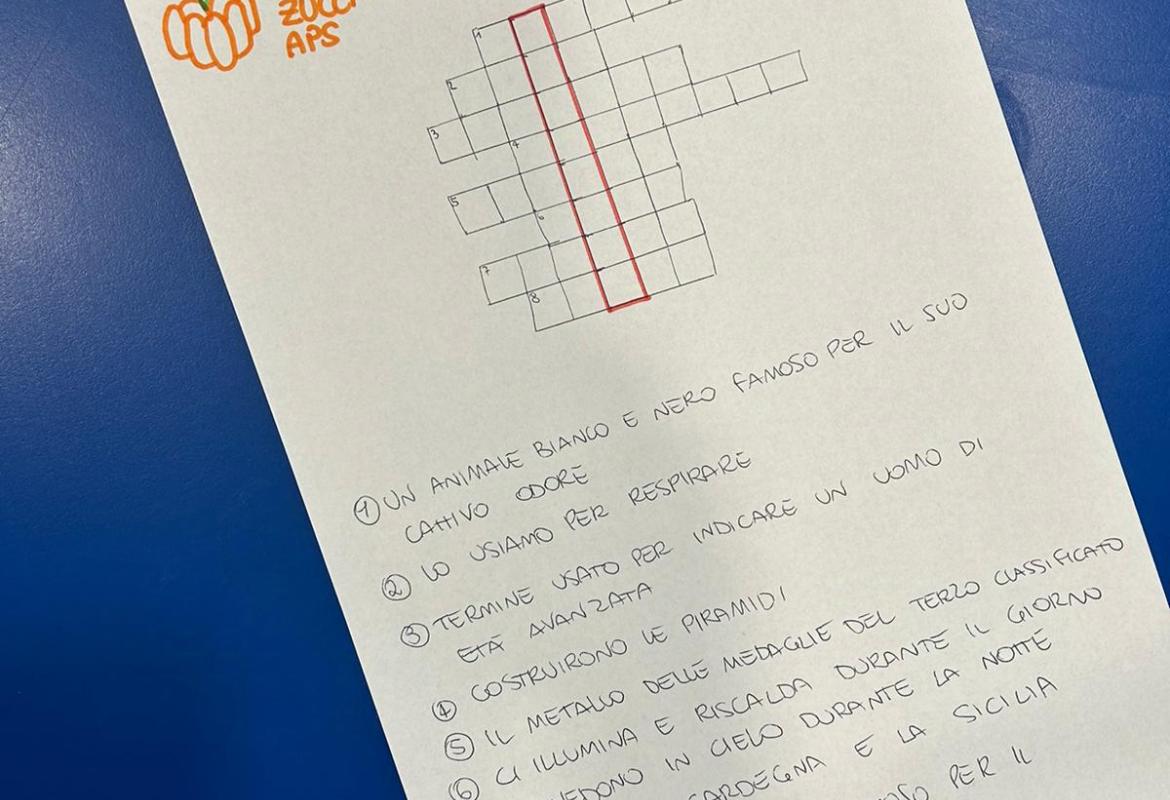 APS
1
2
3
4
5
6
7
8
① UN ANIMALE BIANCO E NERO FAMOSO PER IL SUO
CATTIVO ODORE
② LO USIAMO PER RESPIRARE
③ TERMINE USATO PER INDICARE UN UOMO DI
ETÀ AVANZATA
④ COSTRUIRONO LE PIRAMIDI
⑤ IL METALLO DELLE MEDAGLIE DEL TERZO CLASSIFICATO
⑥ CI ILLUMINA E RISCALDA DURANTE IL GIORNO
IN CIELO DURANTE LA NOTTE
SARDEGNA E LA SICILIA
PER IL